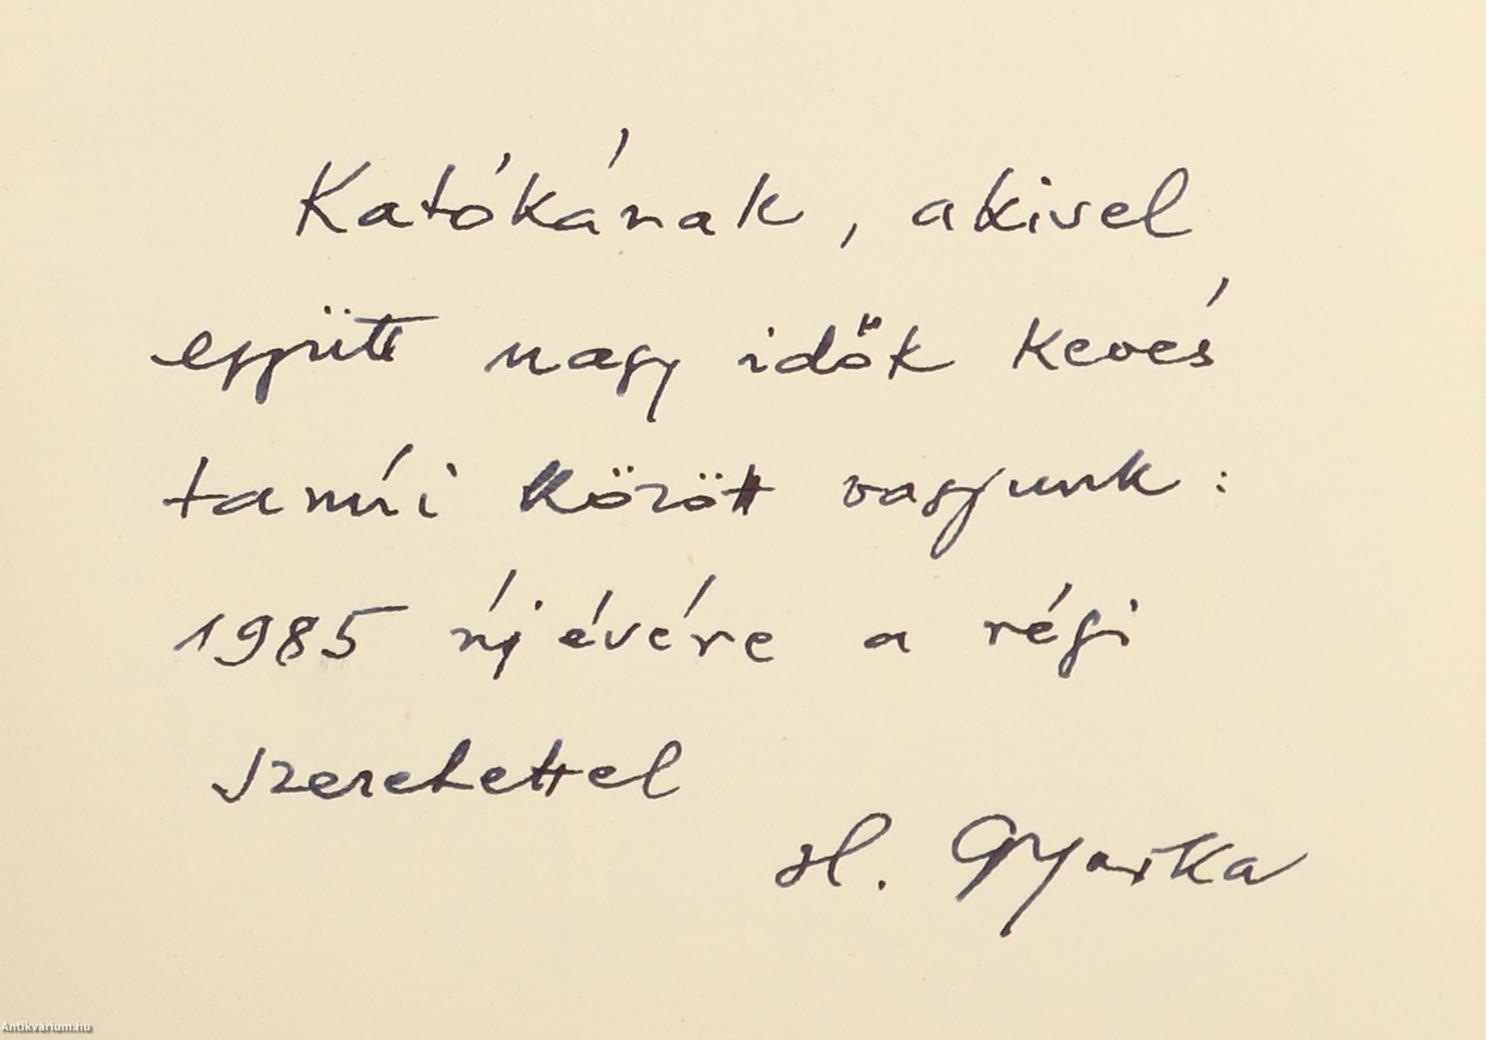 Katókának, akivel
együtt nagy idők kevés
tanúi között vagyunk:
1985 újévére a régi
szeretettel
H. Gyurka
Antikvárium.hu